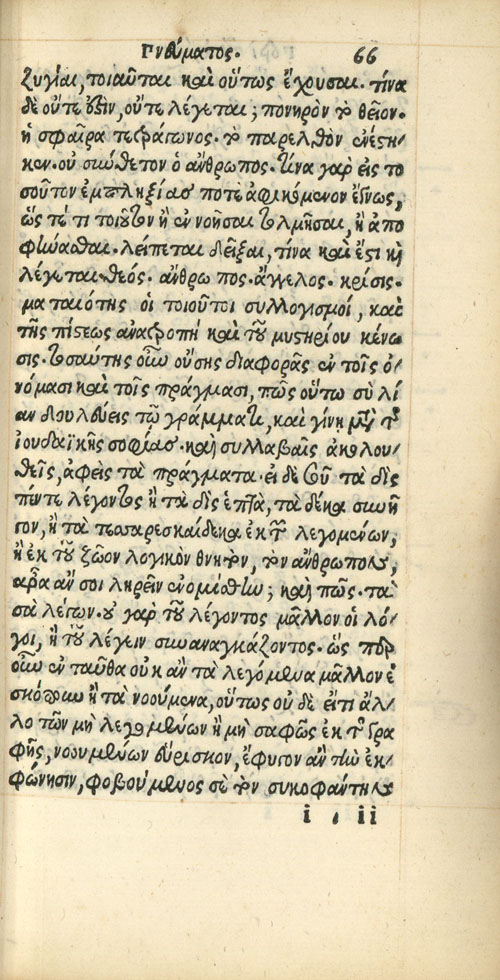 Πνεύματος. 66
ζυγίαι, τοιαῦται καὶ οὕτως ἔχουσαι. τίνα
δὲ οὔτε ὄξιν, οὔτε λέγεται; πονηρὸν τὸ θεῖον.
ἡ σφαῖρα τετράγωνος. τὸ παρελθὸν ἐνέστη-
κεν. οὐ σύνθετον ὁ ἄνθρωπος. τίνα γὰρ εἰς το
σοῦτον ἐμπληξίας ποτὲ ἀφιγμένον ἔγνως,
ὥς τέ τι τοιοῦτον ἢ ἐννοῆσαι τολμῆσαι, ἢ ἀπο
φήνασθαι. λείπεται δεῖξαι, τίνα καὶ ἔστι καὶ
λέγεται. θεός. ἄνθρωπος. ἄγγελος. κρίσις.
ματαιότης οἱ τοιοῦτοι συλλογισμοί, καὶ
τῆς πίστεως ἀνατροπὴ καὶ τοῦ μυστηρίου κένω
σις. τοσαύτης οὖν οὔσης διαφορᾶς ἐν τοῖς ὀ-
νόμασι καὶ τοῖς πράγμασι, πῶς οὕτω σὺ λί
αν δουλεύεις τῷ γράμματι, καὶ γίνῃ μετὰ τῆς
ἰουδαϊκῆς σοφίας. καὶ συλλαβαῖς ἀκολου-
θεῖς, ἀφεὶς τὰ πράγματα. εἰ δέ σου τὰ δὶς
πέντε λέγοντος ἢ τὰ δὶς ἑπτά, τὰ δέκα συνῆ
γον, ἢ τὰ τεσσαρεσκαίδεκα ἐκ τῶν λεγομένων,
ἢ ἐκ τοῦ ζῶον λογικὸν θνητὸν, τὸν ἄνθρωπον,
ἆρα ἄν σοι ληρεῖν ἐνομίσθην; καὶ πῶς. τὰ
σὰ λέγων. οὐ γὰρ τοῦ λέγοντος μᾶλλον οἱ λό-
γοι, ἢ τοῦ λέγειν συναναγκάζοντος. ὥσπερ
οὖν ἐνταῦθα οὐκ ἂν τὰ λεγόμενα μᾶλλον ἐ
σκόπουν ἢ τὰ νοούμενα, οὕτως οὐδὲ εἴ τι ἄλ-
λο τῶν μὴ λεγομένων ἢ μὴ σαφῶς ἐκ τῆς γρα
φῆς, νοουμένων εὕρισκον, ἔφυγον ἂν τὴν ἐκ-
φώνησιν, φοβούμενος σὲ τὸν συκοφάντην
i ii